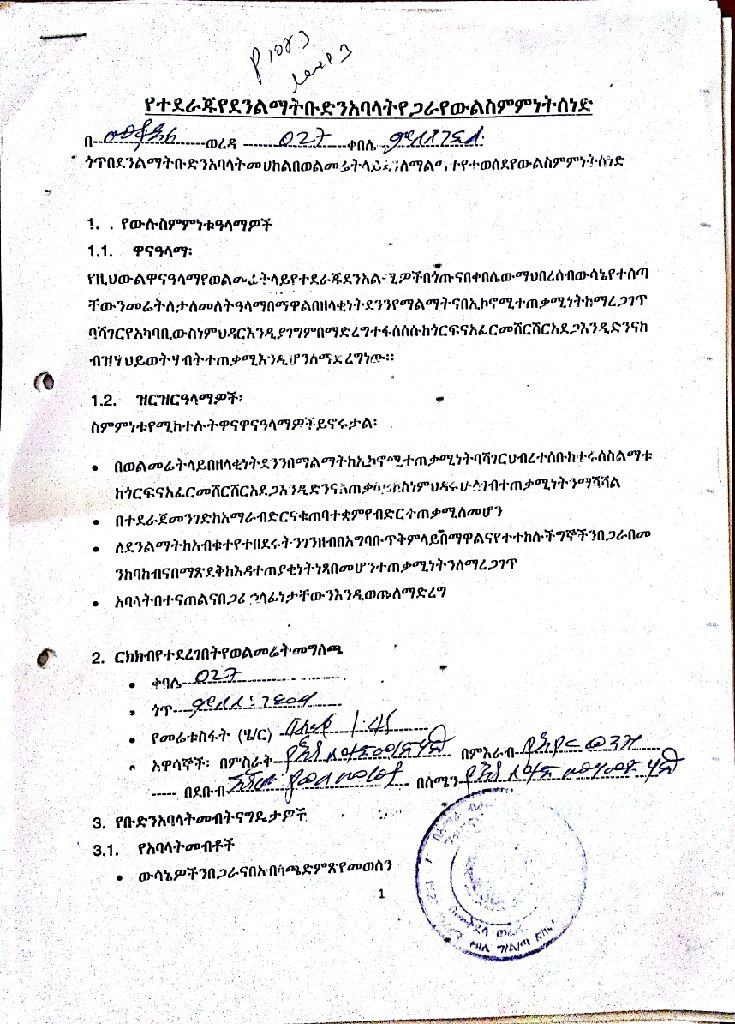 P1083
የተደራጁየደንልማትቡድንአባላትየጋራየውልስምምነትሰነድ
በ- ወረዳ 027 ቀበሌ
ጎጥበደንልማትቡድንአባላትመሀከልበወልመሬትላይደንለማልማትየተወሰደየውልስምምነትሰነድ
1. የውሉስምምነቱዓላማዎች
1.1. ዋናዓላማ፡
የዚህውልዋናዓላማየወልመሬትላይየተደራጁደንአልሚዎችበጎጡናበቀበሌውማህበረሰብውሳኔየተሰጣ
ቸውንመሬትለታለመለትዓላማበማዋልበዘላቂነትደንንየማልማትናበኢኮኖሚተጠቃሚነትከማረጋገጥ
ባሻገርየአካባቢውስነምህዳርእንዲያገግምበማድረግተፋሰሱከጎርፍናአፈርመሸርሸርአደጋእንዲድንናከ
ብዝሃህይወትሃብትተጠቃሚእንዲሆንለማድረግነው።
1.2. ዝርዝርዓላማዎች፡
ስምምነቱየሚከተሉትዋናዋናዓላማዎችይኖሩታል፡
• በወልመሬትላይበዘላቂነትደንንበማልማትከኢኮኖሚተጠቃሚነትባሻገርህብረተሰቡከተራሰስልማቱ
ከጎርፍናአፈርመሸርሸርአደጋእንዲድንናአጠቃላይከስነምህዳሩሁለገብተጠቃሚነትንማሻሻል
• በተደራጀመንገድከአማራብድርናቁጠባተቋምየብድርተጠቃሚለመሆን
• ለደንልማትከአብቁተየተበደሩትንገንዘብበአግባቡጥቅምላይበማዋልናየተተከሉችግኞችንበጋራበመ
ንከባከብናበማጽደቅከእዳተጠያቂነትነጻበመሆንተጠቃሚነትንለማረጋገጥ
• አባላትበተናጠልናበጋራኃላፊነታቸውንእንዲወጡለማድረግ
2. ርክክብየተደረገበትየወልመሬትመግለጫ
• ቀበሌ 027
• ጎጥ
• የመሬቱስፋት (ሄ/ር)
• አዋሳኞች፡ በምስራቅ በምእራብ
በደቡብ በሰሜን
3. የቡድንአባላትመብትናግዴታዎች
3.1. የአባላትመብቶች
• ውሳኔዎችንበጋራናበአብላጫድምጽየመወሰን
1